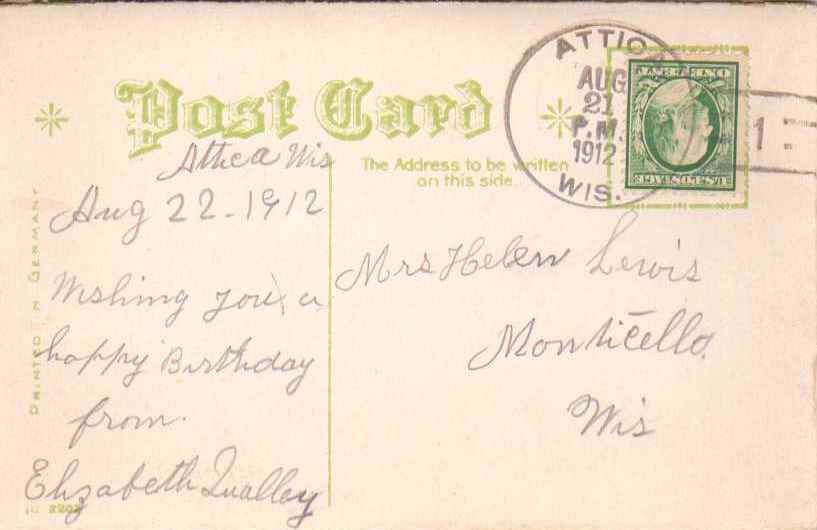 Post Card
The Address to be written
on this side.
Attica Wis
Aug 22 - 1912
Wishing you a
happy Birthday
from.
Elizabeth Qualley
Mrs Helen Lewis
Monticello,
Wis
ATTICA
AUG
21
P.M.
1912
WIS.
1
ONE CENT
U.S. POSTAGE
PRINTED IN GERMANY
2202